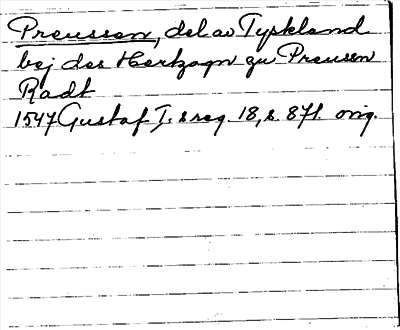 Preussen, del av Tyskland
bej des Hertzogn zu Preusen
Radt
1547 Gustaf I:s reg. 18, s. 871. orig.